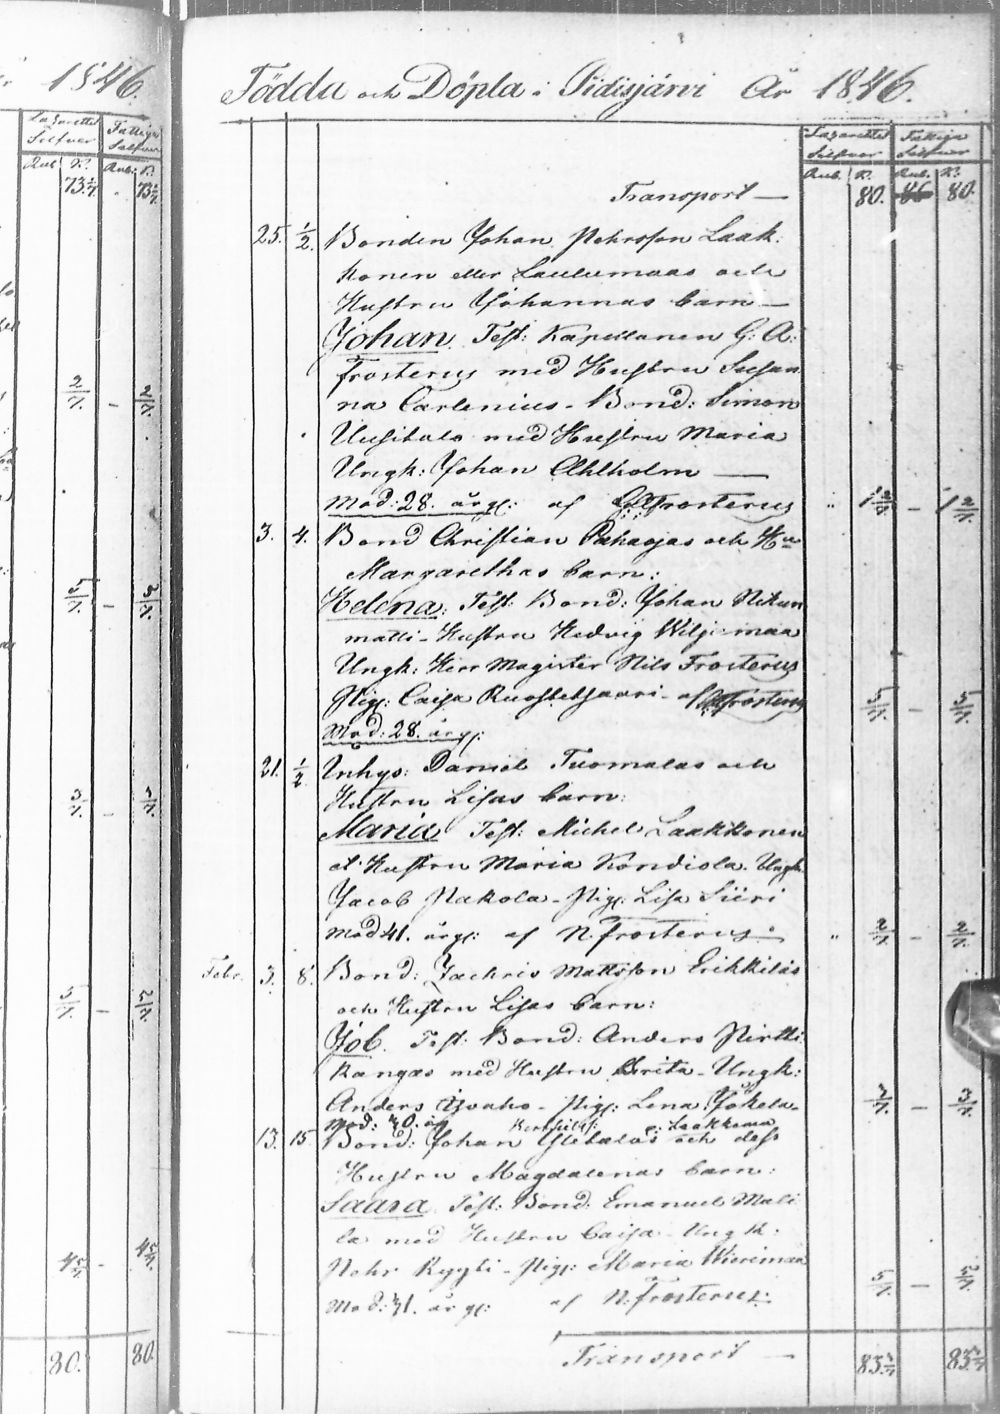 1846.
Lazarettet Silfver Fattiga Silfver
Rub. K. Rub. K.
73 2/7. 73 2/7.
80. 80.
Födda och Döpta i Pidisjärvi År 1846.
Lazarettet Silfver Fattiga Silfver
Rub. K. Rub. K.
Transport — 80. 80.
25. 1/2. Bonden Johan Pehrsson Laak:
konen eller Laulumaas och
Hustru Johannas barn —
Johan. Test: Kapellanen G: A:
Frosterus med Hustru Susan
na Carlenius - Bond: Simon
Uusitalo med Hustru Maria
Ungk: Johan Ahlholm —
Mod: 28. årg: af GAFrosterus 1 2/7. — 1 2/7.
3. 4. Bond Christian Pahaojas och Hu
Margarethas barn:
Helena: Test: Bond: Johan Niku
matti - Hustru Hedvig Wiljamaa
Ungk: Herr Magister Nils Frosterus
Pig: Caisa Ruostetsaari - af Frosterus 5/7. — 5/7.
Mod: 28. årg:
21. 1/2 Inhys: Daniel Tuomalas och
Hustru Lisas barn:
Maria Test: Michel Laakkonen
et Hustru Maria Kondiola. Ungk
Jacob Pakola - Pig: Lisa Siiri
Mod 41. årg: af N. Frosterus: 2/7. — 2/7.
Febr. 3. 8. Bond: Zachris Mattsson Erikkiläs
och Hustru Lisas barn:
Job. Test: Bond: Anders Pirtti
kangas med Hustru Brita - Ungk:
Anders Ahvaho - Pig: Lena Jokela - 3/7. — 3/7.
Mod: 40. år
13. 15. Bond: Johan Ylitalos och dess
Hustru Magdalenas barn:
Saara Test: Bond: Emanuel Mali
la med Hustru Caisa - Ungk:
Pehr Ryyti - Pig: Maria Wierimaa
Mod: 41. årg: af N. Frosterus: 5/7. — 5/7.
Transport — 83 3/7 83 3/7